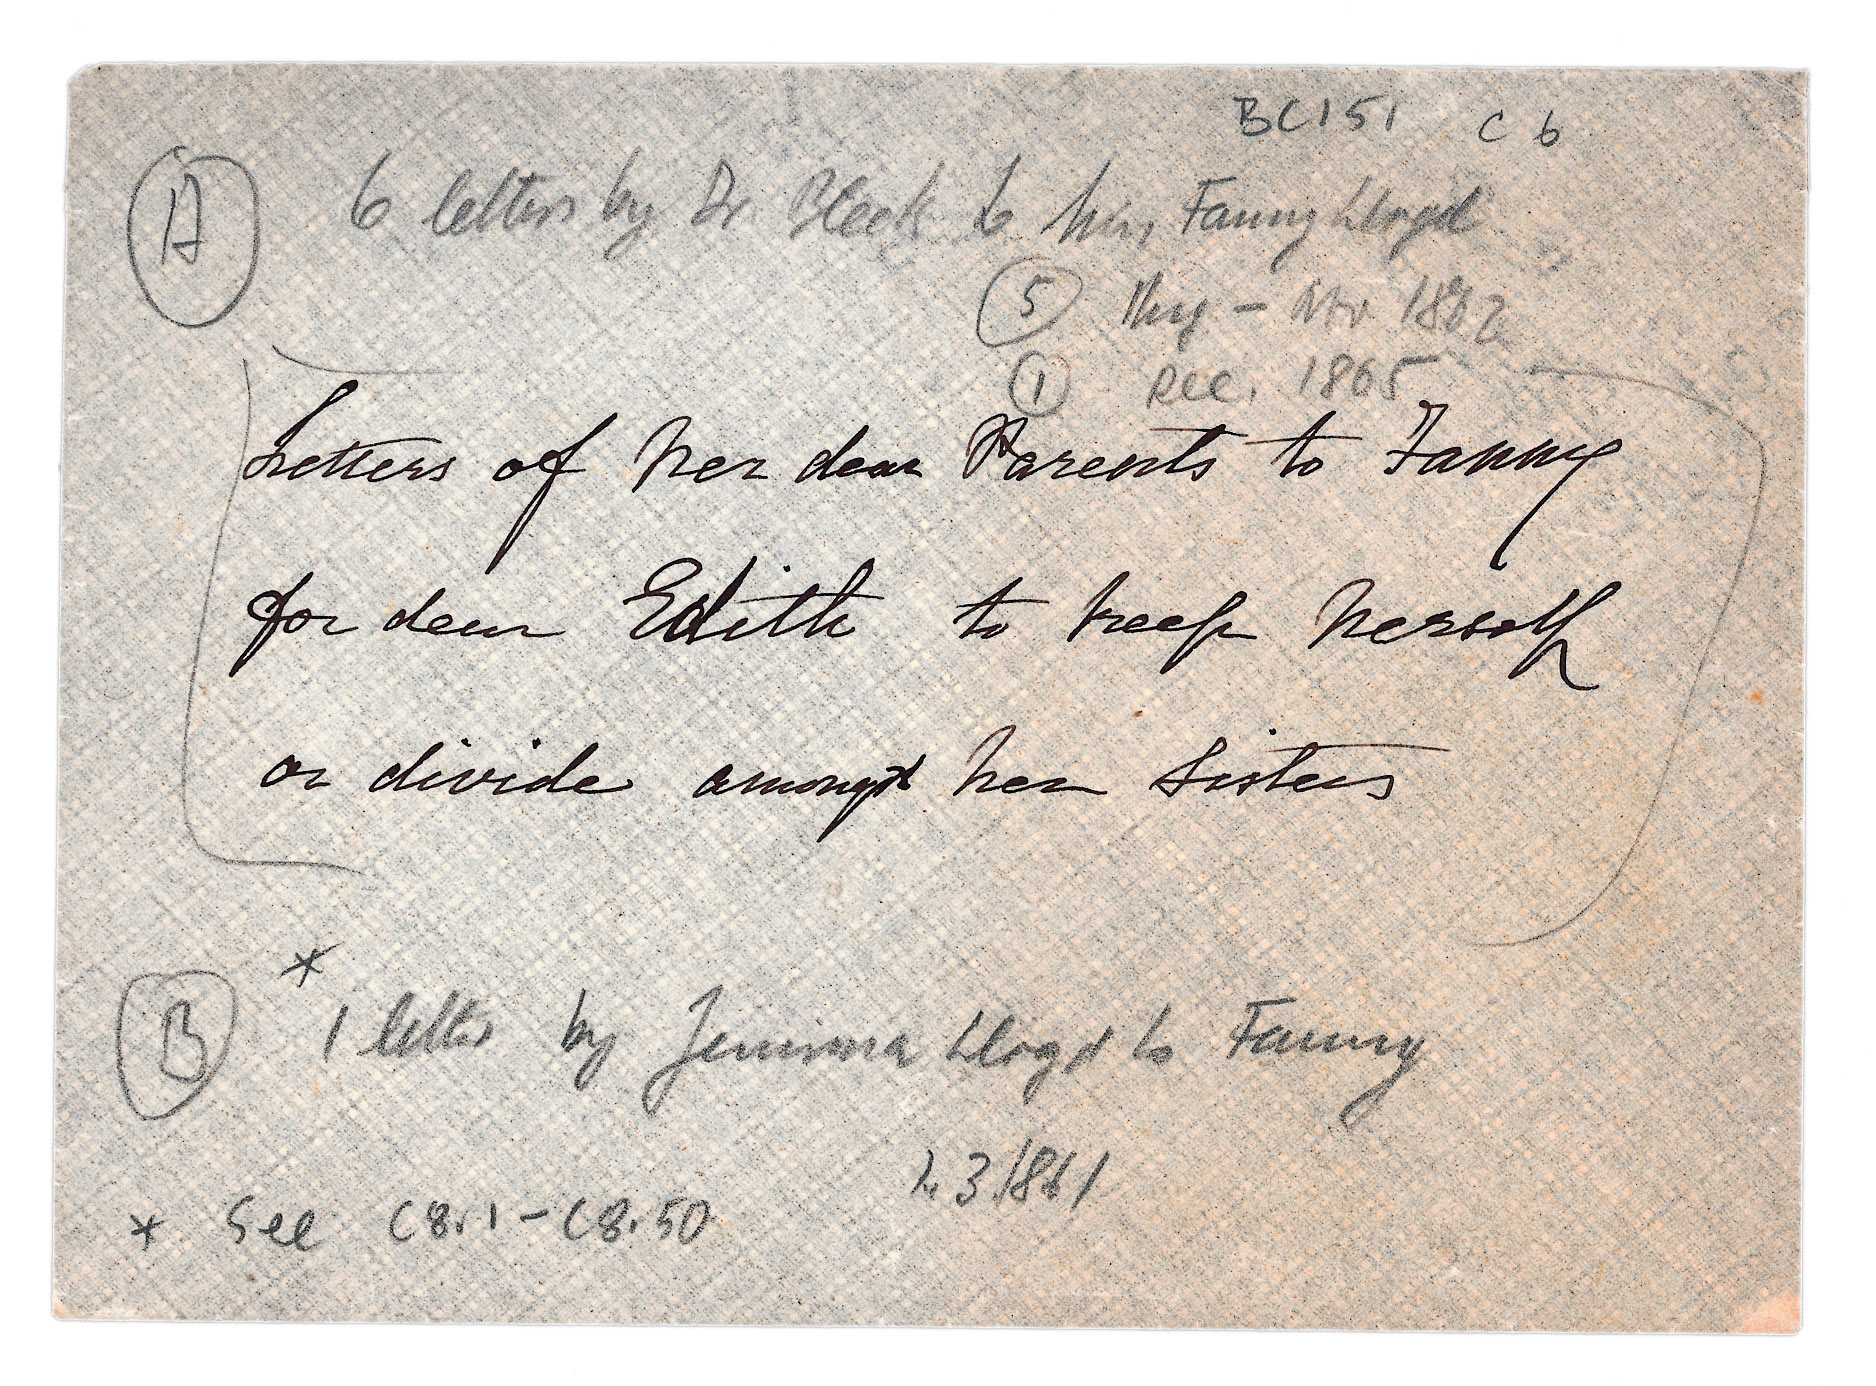 BC151 C6
A 6 letters by Dr. Bleek to Miss Fanny Lloyd
5 Aug - Nov 1862
1 Dec. 1865
Letters of her dear Parents to Fanny
for dear Edith to keep herself
or divide amongst her Sisters
*
B 1 letter by Jemima Lloyd to Fanny
2.3.1861
* See C8.1-C8.50